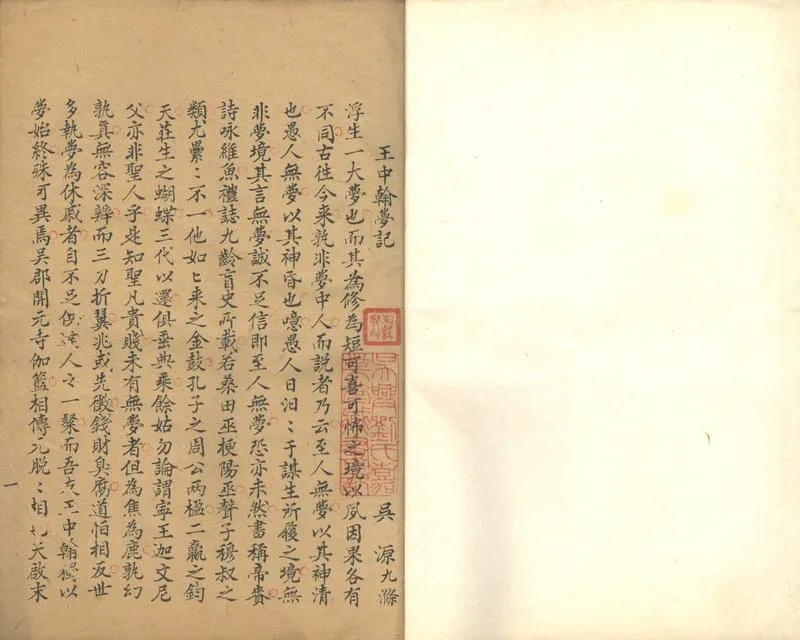 王中翰夢記
吳 源九滌
浮生一大夢也而其為修為短可喜可怖之境以夙因果各有
不同古徃今来孰非夢中人而說者乃云至人無夢以其神清
也愚人無夢以其神昏也噫愚人日汩〻于謀生所履之境無
非夢境其言無夢誠不足信即至人無夢恐亦未然書稱帝賚
詩咏維魚禮誌九齡盲史所載若桑田巫梗陽巫聲子穆叔之
類尤纍〻不一他如匕来之金鼓孔子之周公两楹二贏之鈞
天荘生之蝴蝶三代以還俱垂典乘餘姑勿論謂寧王迦文尼
父亦非聖人乎是知聖凡貴賤未有無夢者但為焦為鹿孰幻
孰眞無容深辨而三刀折翼兆或先徵錢財臭腐道怕相反世
多執夢為休戚者自不足 人之一粲而吾友王中翰 以
夢始終殊可異焉吳郡開元寺伽籃相傳元脱〻 天啟末
一
吳興劉氏嘉